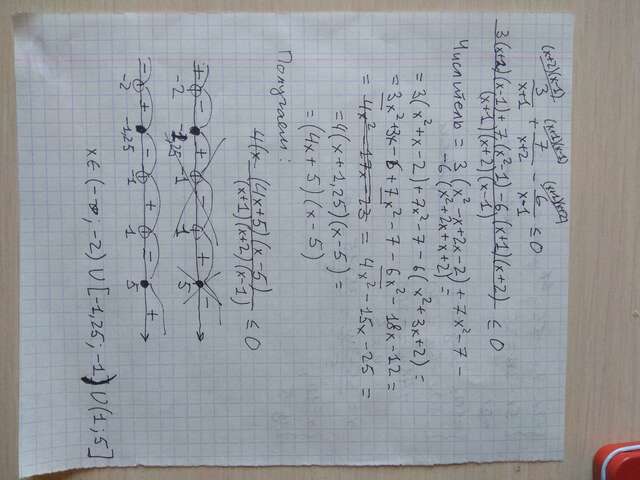 (x+2)(x-1) (x+1)(x-1) (x+1)(x+2)
3/(x+1) + 7/(x+2) - 6/(x-1) ≤ 0
(3(x+2)(x-1)+7(x²-1)-6(x+1)(x+2))/((x+1)(x+2)(x-1)) ≤ 0
Числитель = 3(x²-x+2x-2)+7x²-7-
-6(x²+2x+x+2)=
=3(x²+x-2)+7x²-7-6(x²+3x+2)=
=3x²+3x-6+7x²-7-6x²-18x-12=
= 4x²-17x-23 = 4x²-15x-25=
=4(x+1,25)(x-5)=
=(4x+5)(x-5)
Получаем:
(4x+5)(x-5)/((x+1)(x+2)(x-1)) ≤ 0
+ - + - + -
-2 -1,25 -1 1 5
- + - + - +
-2 -1,25 -1 1 5
x∈(-∞;-2)∪[-1,25;-1)∪(1;5]